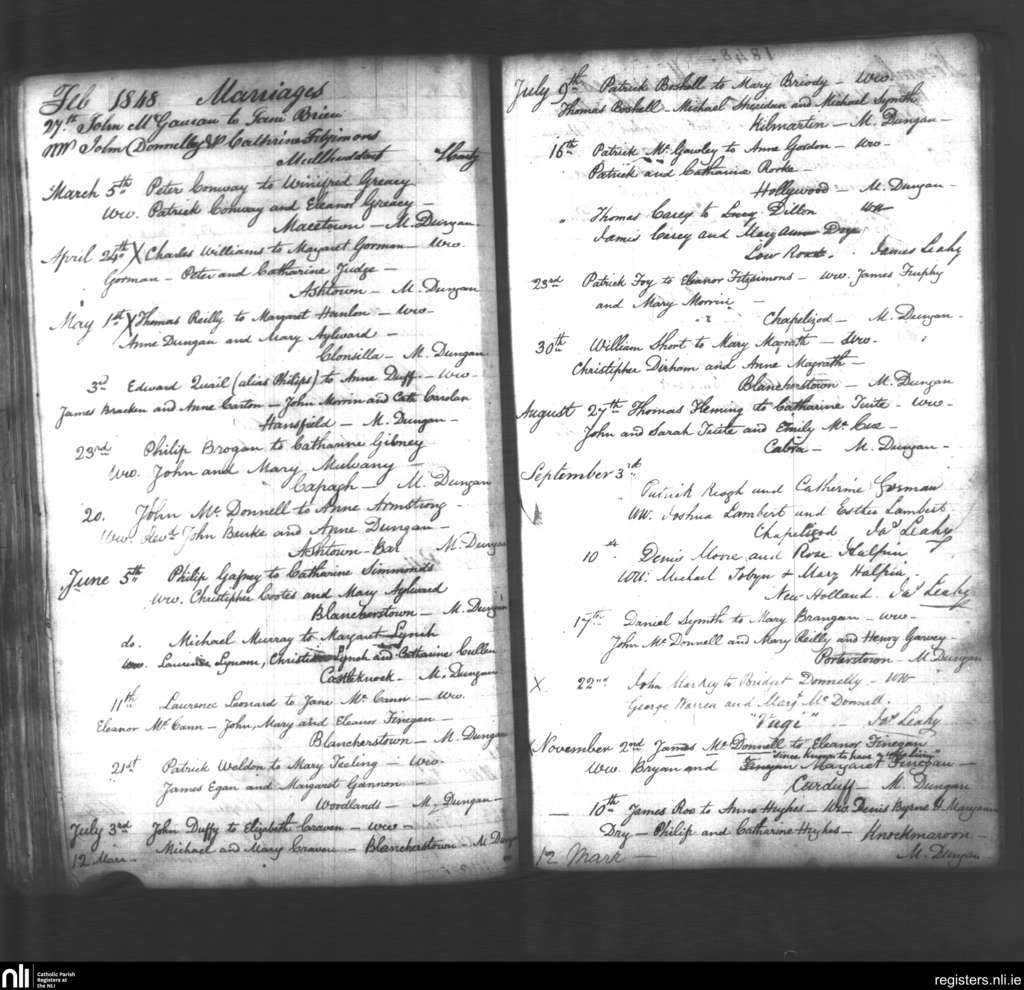 Feb 1848 Marriages
27th John McGauran to Jane Brien
WW John Donnelly & Cathrine Fitzimons
Mullhuddart
March 5th Peter Conway to Winifred Greacy
Ww. Patrick Conway and Eleanor Greacy -
Macetown - M. Dungan
April 24th X Charles Williams to Margaret Gorman - Ww.
Gorman - Peter and Catharine Judge -
Ashtown - M. Dungan
May 1st X Thomas Reilly to Margaret Hanlon - Ww.
Anne Dungan and Mary Aylward -
Clonsilla - M. Dungan
3rd Edward Quail (alias Philips) to Anne Duffy - Ww -
James Bracken and Anne Carton - John Morrin and Cath Carolan
Hansfield - M. Dungan -
23rd Philip Brogan to Catharine Gibney
Ww. John and Mary Mulvany -
Capagh - M. Dungan
20. John Mc Donnell to Anne Armstrong -
Ww. Revd. John Burke and Anne Dungan -
Ashtown-Bar M. Dungan
June 5th Philip Gafney to Catharine Simmonds
Ww. Christopher Cootes and Mary Aylward
Blancherstown - M. Dungan
do. Michael Murray to Margaret Lynch
Ww. Laurence Lynam, Christian Lynch and Catharine Cullen
Castleknock - M. Dungan
11th Laurence Leonard to Jane Mc Cann - Ww.
Eleanor Mc Cann - John, Mary and Eleanor Finegan -
Blancherstown - M. Dungan
21st Patrick Weldon to Mary Teeling - Ww.
James Egan and Margaret Gannon -
Woodlands - M. Dungan -
July 3rd John Duffy to Elizabeth Craven - Ww -
12 Marr - Michael and Mary Craven - Blancherstown - M. Dungan
July 9th Patrick Boshell to Mary Briody - Ww
Thomas Boshell - Michael Sheridan and Michael Symth
Kilmartin - M. Dungan -
16th Patrick Mc Gawley to Anne Gordon - Ww -
Patrick and Catharine Rorke -
Hollywood - M. Dungan -
" Thomas Carey to Lucy Dillon WW
James Carey and Maryanne
Low Road. James Leahy
23rd Patrick Foy to Eleanor Fitzsimons - Ww. James Furphy
and Mary Morrin -
Chapelizod - M. Dungan -
30th William Short to Mary Magrath - Ww -
Christopher Dirham and Anne Magrath -
Blancherstown - M. Dungan
August 27th Thomas Fleming to Catharine Tuite - Ww -
John and Sarah Tuite and Emily Mc Cue -
Cabra - M. Dungan -
September 3rd
Patrick Keogh and Catherine Gorman
WW. Joshua Lambert and Esther Lambert
Chapelizod Jas Leahy
10th Denis Moore and Rose Halpin
WW: Michael Tobyn & Mary Halpin.
New Holland. Jas Leahy
17th Daniel Symth to Mary Brangan - Ww -
John Mc Donnell and Mary Reilly and Henry Garvey -
Porterstown - M. Dungan
X 22nd John Markey to Bridget Donnelly - WW
George Warren and Margt Mc Donnell.
"Fugi" Jas Leahy
November 2nd James Mc Donnell to Eleanor Finegan
"since known to have a wife living"
Ww. Bryan and Finegan Margaret Finegan -
Curduff - M. Dungan
- 10th James Roe to Anne Hughes - Ww. Denis Byrne & Maryann
Dry - Philip and Catharine Hughes - Knockmaroon -
12 Mark - M. Dungan
nli Catholic Parish
Registers at
the NLI
registers.nli.ie